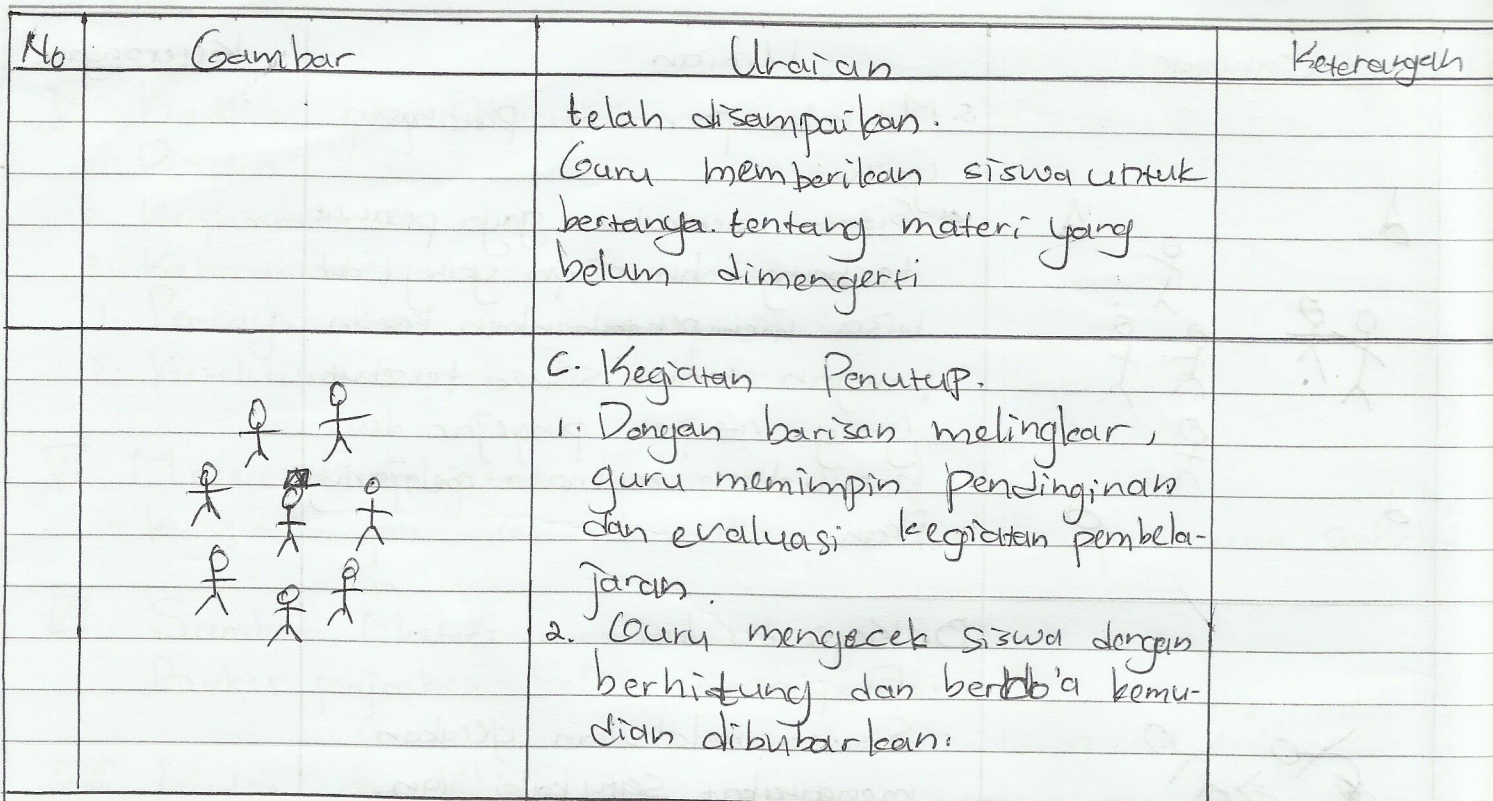 No Gambar Uraian Keterangan
telah disampaikan.
Guru memberikan siswa untuk
bertanya. tentang materi yang
belum dimengerti
C. Kegiatan Penutup.
1. Dengan barisan melingkar,
guru memimpin pendinginan
dan evaluasi kegiatan pembela-
jaran.
2. Guru mengecek siswa dengan
berhitung dan berdo'a kemu-
dian dibubarkan.